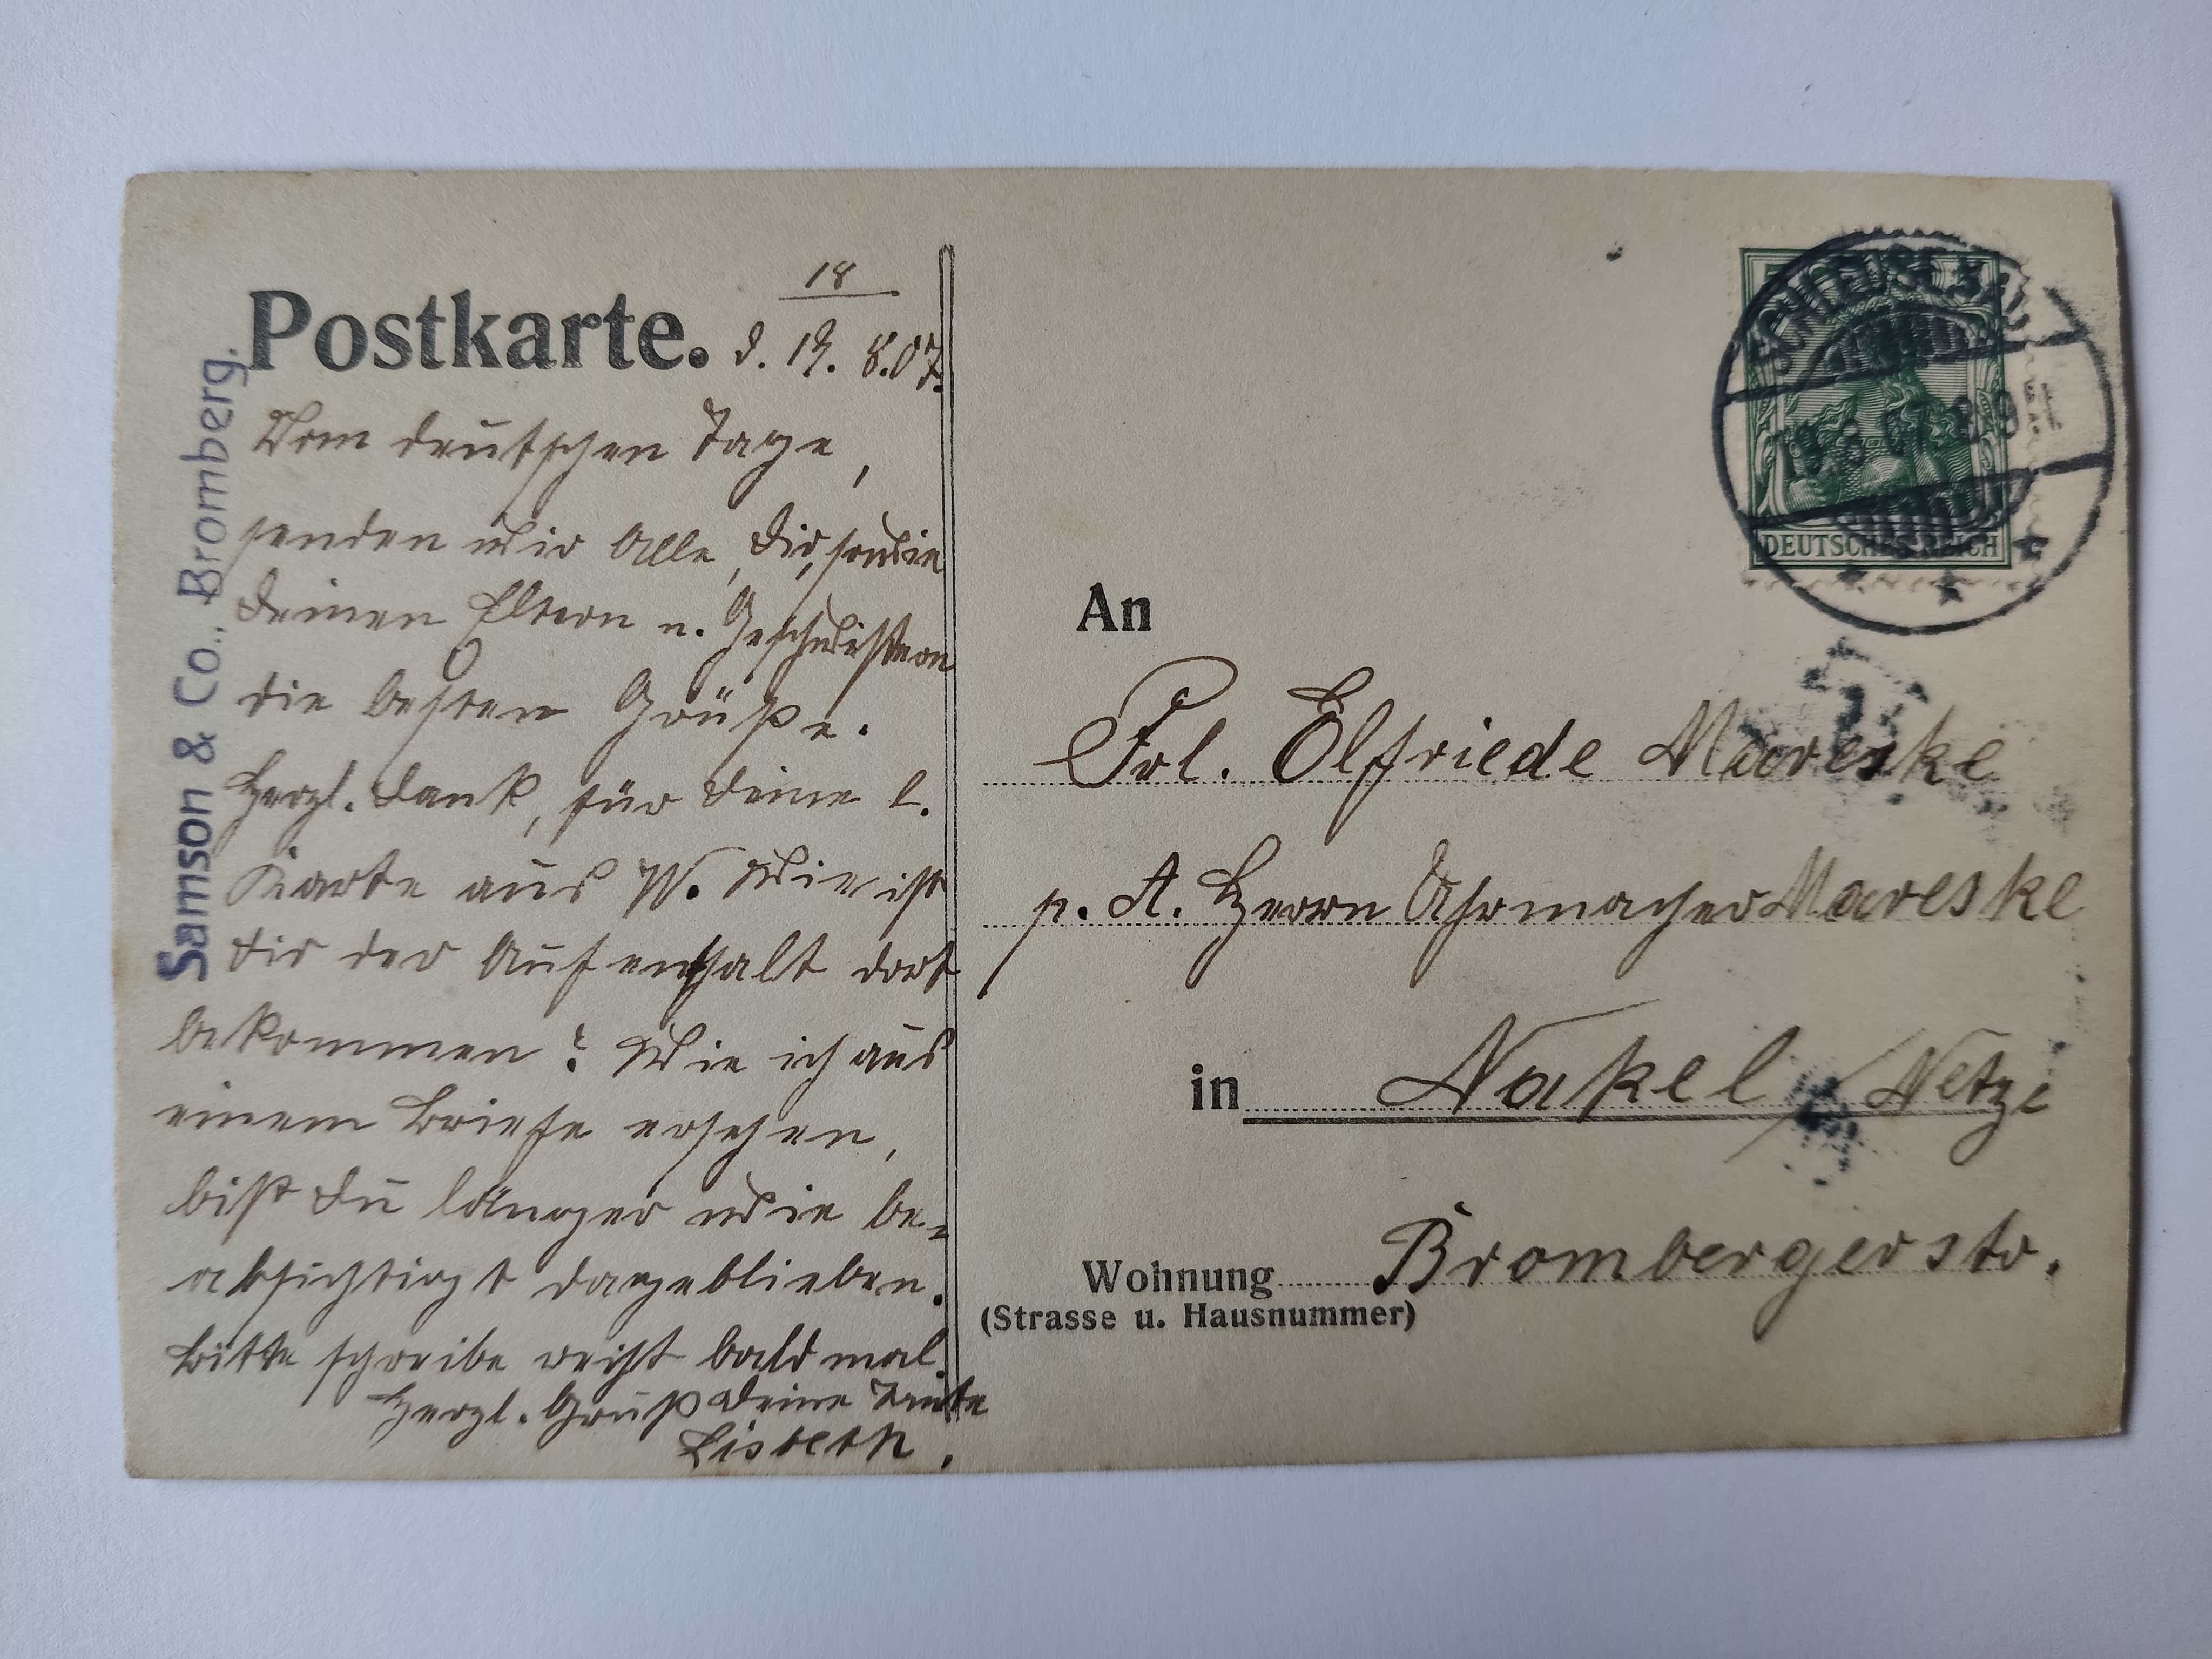 Postkarte.
18
d. 19. 8.07.
Vom deutschen Tage,
senden wir Alle, Dir, sowie
Deinen Eltern u. Geschwistern
die besten Grüße.
Herzl. Dank, für Deine l.
Karte aus W. Wie ist
Dir der Aufenthalt dort
bekommen? Wie ich aus
einem Briefe ersehen,
bist Du länger wie be-
absichtigt dageblieben.
Bitte schreibe recht bald mal.
Herzl. Gruß Deine Tante
Lisbeth.
Samson & Co., Bromberg.
DEUTSCHES REICH
An
Frl. Elfriede Mareske
p. A. Herrn Uhrmacher Mareske
in Nakel / Netze
Wohnung Brombergerstr.
(Strasse u. Hausnummer)